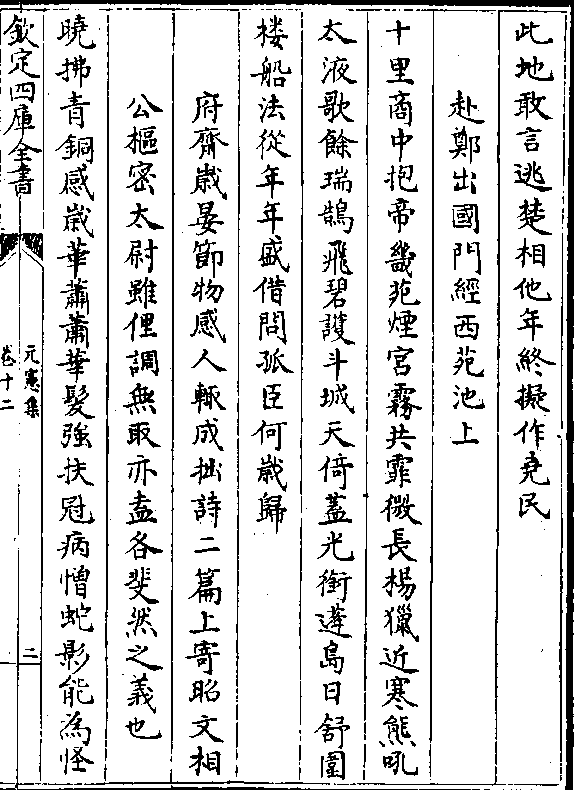 此地敢言逃楚相他年終擬作堯民
赴鄭出國門經西苑池上
十里商中抱帝畿苑煙宮霧共霏微長楊獵近寒熊吼
太液歌餘瑞鵠飛碧護斗城天倚蓋光銜蓬島日舒圍
楼船法從年年盛借問孤臣何歲歸
府齋歲晏節物感人輙成拙詩二篇上寄昭文相
公樞密太尉雖俚調無取亦盍各斐然之義也
曉拂青銅感歲華蕭蕭華髮強扶冠病憎蛇影能為怪
欽定四庫全書
元憲集
卷十二
二